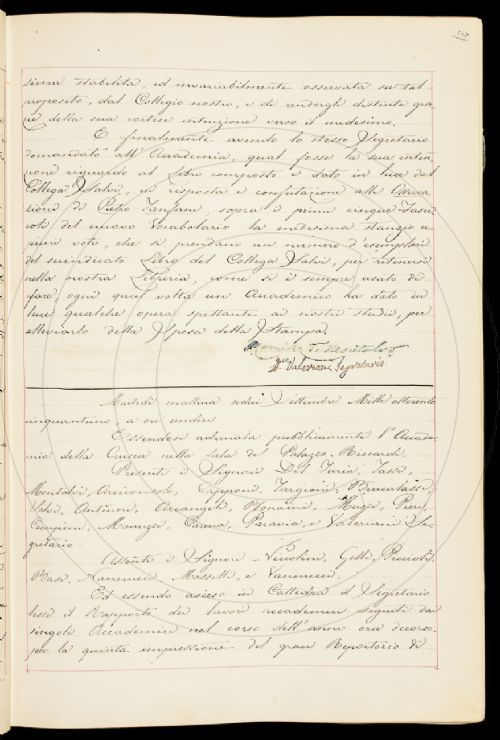 107
sima stabilita, ed invariabilmente osservata su tal
proposito, dal Collegio nostro, e di rendergli distinte gra-
zie della sua cortese intenzione verso il medesimo.
E finalmente avendo lo stesso Segretario
domandato all'Accademia, qual fosse la sua inten-
zione riguardo al Libro composto e dato in luce dal
Collega Salvi, in risposta e confutazione alle Osserva-
zioni di Pietro Fanfani, sopra i primi cinque Fasci-
coli del nuovo Vocabolario la medesima stanziò a
voti, che si prendano un numero d'esemplari
del suindicato Libro del Collega Salvi, per ritenersi
nella nostra Libreria, come si è sempre usato di
fare, ogni qual volta un Accademico ha dato in
luce qualche opera spettante ai nostri studi, per
alleviarlo della spesa della Stampa.
Valeriani Segretario
Martedì mattina sedici Settembre Mille ottocento
cinquantuno, a ore undici
Essendosi adunata pubblicamente l'Accade-
mia della Crusca nella sala del Palazzo Riccardi
Presenti i Signori Del Furia, Tassi,
Montalvi, Arciconsolo, Capponi, Targioni, Brucalassi,
Salvi, Antinori, Arcangeli, Bonaini, Muzzi, Pieri,
Ciampini, Manuzzi, Carena, Paravia, e Valeriani Se-
gretario.
Assenti i Signori Niccolini, Gelli, Puccioti,
Basi, Nannucci, Masselli, e Vannucci.
Ed essendo asceso in Cattedra il Segretario
lesse il Rapporto dei lavori accademici seguiti dai
singoli Accademici nel corso dell'anno ora decorso
per la quinta impressione del gran Repertorio di